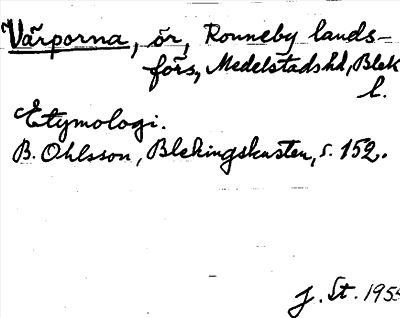 Värporna, ör, Ronneby lands-
förs, Medelstads hd, Blek
l.
Etymologi.
B. Ohlsson, Blekingskusten, s. 152.
J. St. 1955